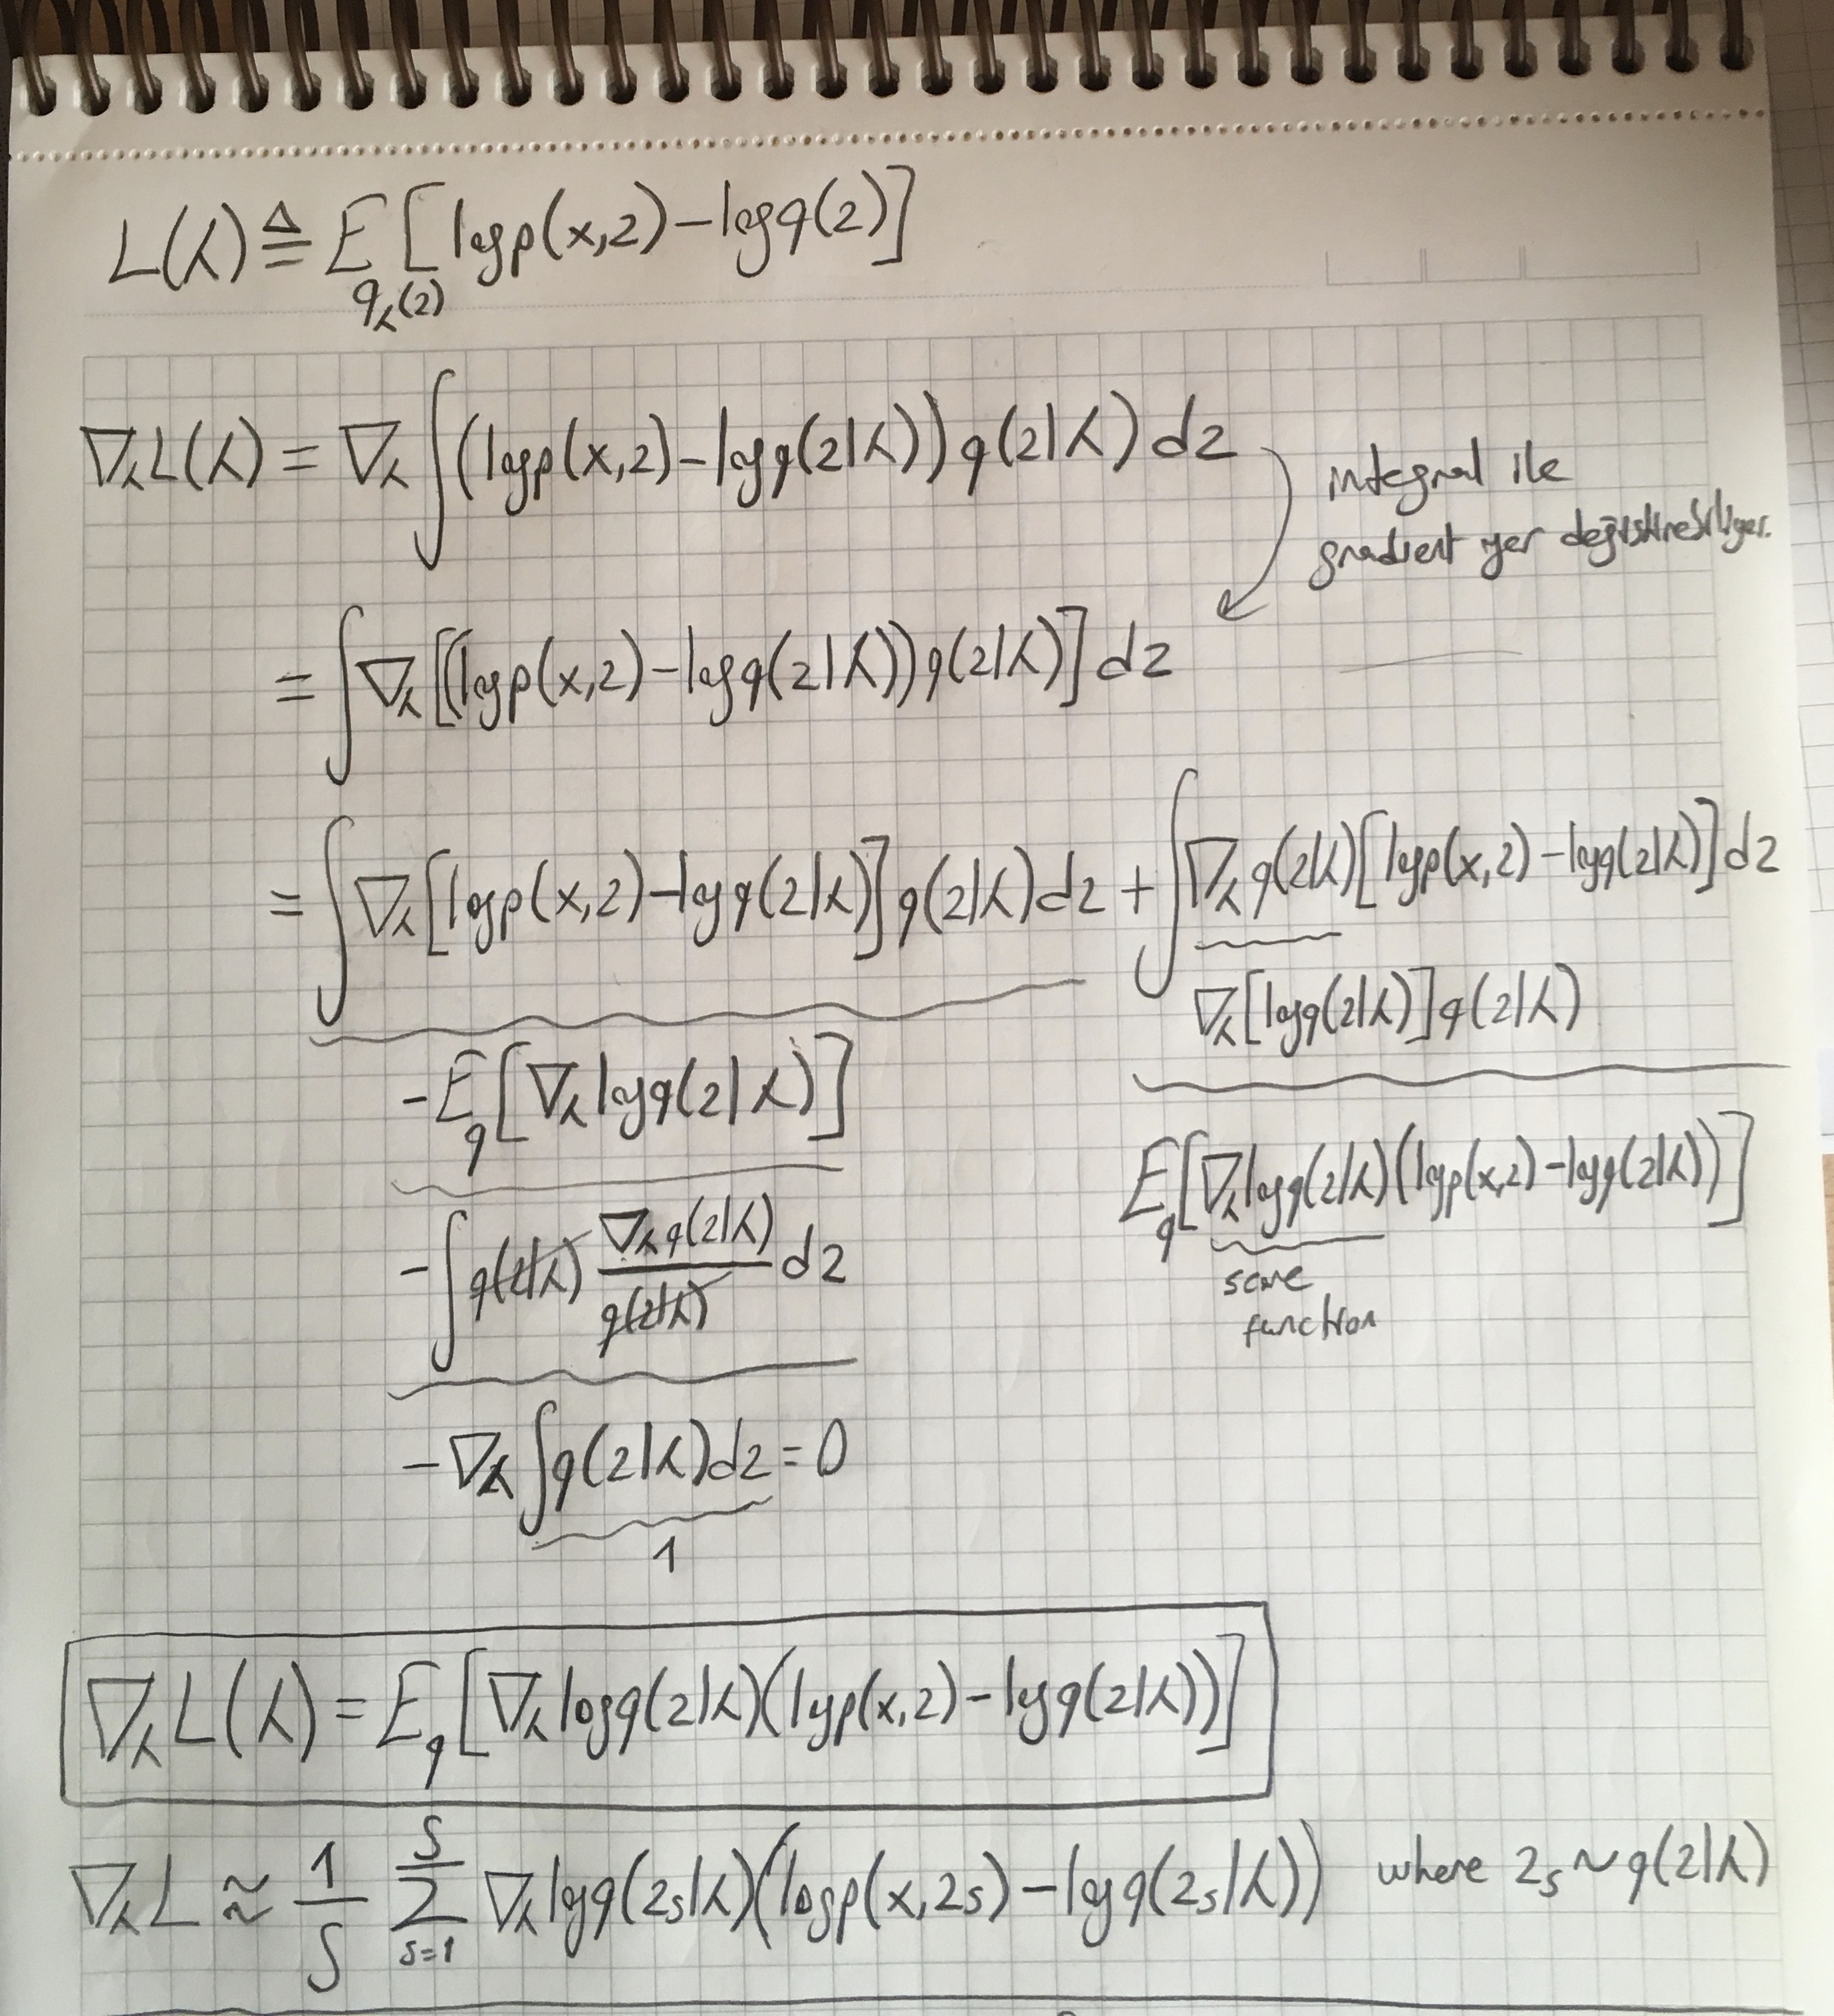 L(λ) ≜ E_{q_λ(z)} [log p(x,z) − log q(z)]
∇_λ L(λ) = ∇_λ ∫ (log p(x,z) − log q(z|λ)) q(z|λ) dz
integral ile
gradient yer değiştirebiliyor.
= ∫ ∇_λ [(log p(x,z) − log q(z|λ)) q(z|λ)] dz
= ∫ ∇_λ [log p(x,z) − log q(z|λ)] q(z|λ) dz + ∫ ∇_λ q(z|λ) [log p(x,z) − log q(z|λ)] dz
∇_λ [log q(z|λ)] q(z|λ)
−E_q [∇_λ log q(z|λ)]
E_q [∇_λ log q(z|λ) (log p(x,z) − log q(z|λ))]
score
function
−∫ q(z|λ) ∇_λ q(z|λ) / q(z|λ) dz
−∇_λ ∫ q(z|λ) dz = 0
1
∇_λ L(λ) = E_q [∇_λ log q(z|λ) (log p(x,z) − log q(z|λ))]
∇_λ L ≈ 1/S ∑_{s=1}^{S} ∇_λ log q(z_s|λ) (log p(x,z_s) − log q(z_s|λ)) where z_s ~ q(z|λ)